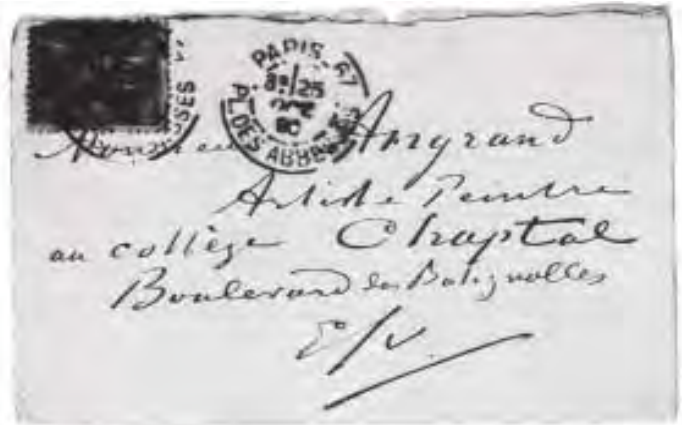 PARIS 67
PL. DES ABBESSES
8E/25
Monsieur Angrand
Artiste Peintre
au collège Chaptal
Boulevard des Batignolles
E/V.